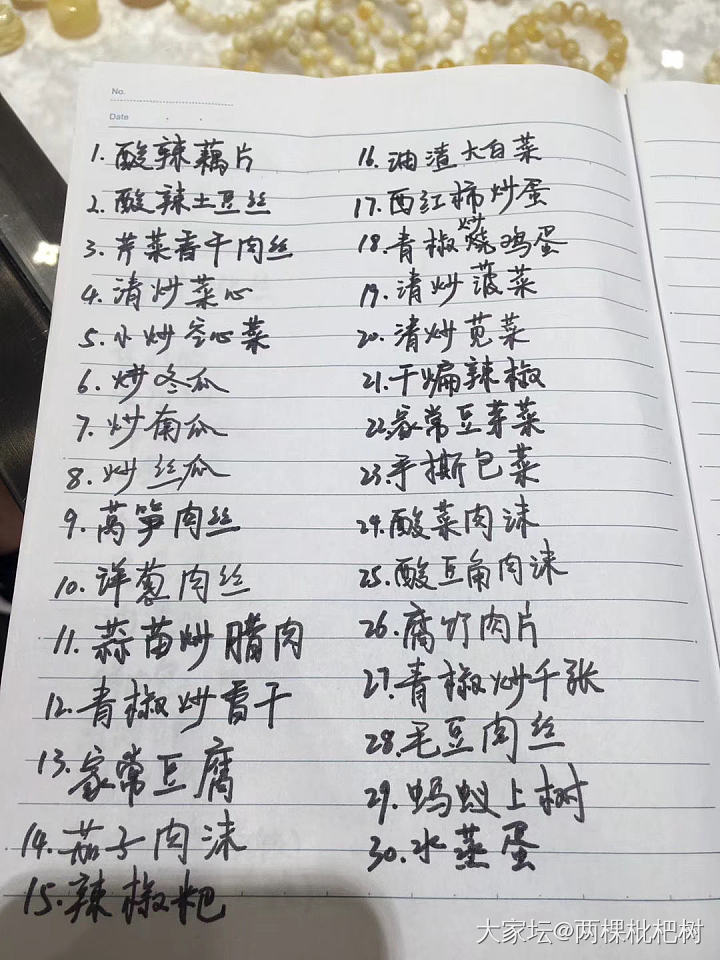 No.
Date
1. 酸辣藕片
2. 酸辣土豆丝
3. 芹菜香干肉丝
4. 清炒菜心
5. 小炒空心菜
6. 炒冬瓜
7. 炒南瓜
8. 炒丝瓜
9. 莴笋肉丝
10. 洋葱肉丝
11. 蒜苗炒腊肉
12. 青椒炒香干
13. 家常豆腐
14. 茄子肉沫
15. 辣椒粑
16. 油渣大白菜
17. 西红柿炒蛋
18. 青椒炒烧鸡蛋
19. 清炒菠菜
20. 清炒苋菜
21. 干煸辣椒
22. 家常豆芽菜
23. 手撕包菜
24. 酸菜肉沫
25. 酸豆角肉沫
26. 腐竹肉片
27. 青椒炒千张
28. 毛豆肉丝
29. 蚂蚁上树
30. 水蒸蛋
大家坛@两棵枇杷树